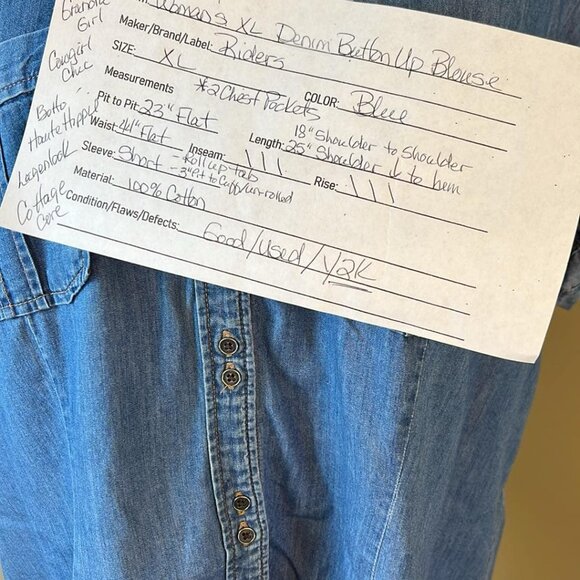 Grandie
Girl
Cowgirl
Chic
Boho
Haute Hippie
Lagenlook
Cottage
Core
Woman's XL Denim Button Up Blouse
Maker/Brand/Label: Riders
SIZE: XL
COLOR: Blue
Measurements *2 Chest Pockets
Pit to Pit: 23" Flat
18" Shoulder to Shoulder
Waist: 44" Flat Length: 25" Shoulder to hem
Sleeve: Short - Roll up tab Inseam: \ \ \ Rise: \ \ \
- 3" Pit to Cuff/un-rolled
Material: 100% Cotton
Condition/Flaws/Defects: Good/Used/Y2K